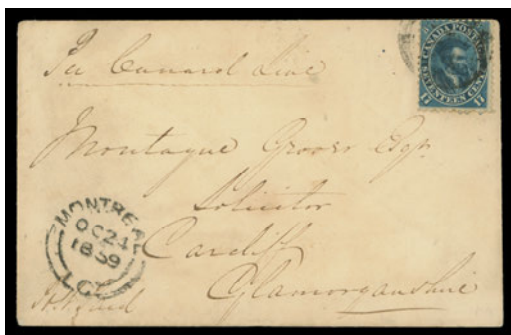 Per Cunard Line
CANADA POSTAGE
SEVENTEEN CENTS
17 17
Montague Esqr.
Solicitor
Cardiff
Glamorganshire
MONTREAL
OC 24
1859